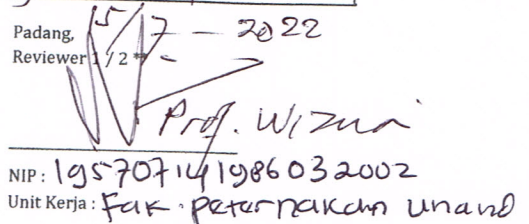 Padang, 15/7 - 2022
Reviewer 1/2
Prof. Wizna
NIP : 195707141986032002
Unit Kerja : Fak. peternakan unand